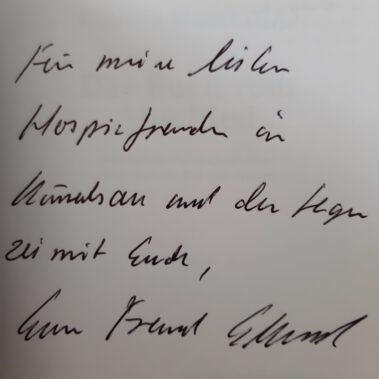 Für meine lieben
Hospizfreunde in
Künzelsau und der Segen
sei mit Euch,
Euer Freund